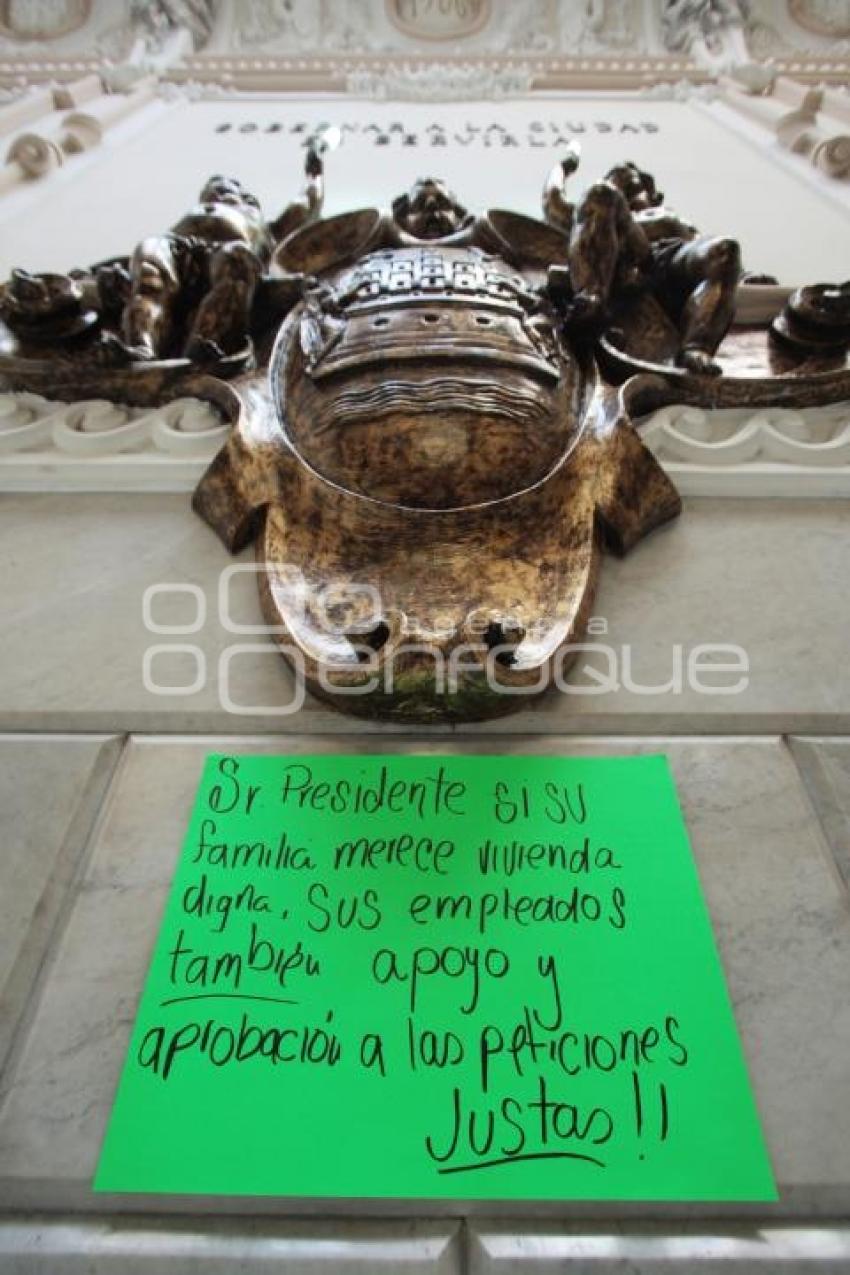 1906
GOBERNAR A LA CIUDAD
ES SERVIRLA
agencia
enfoque
Sr. Presidente si su
familia merece vivienda
digna. Sus empleados
también apoyo y
aprobación a las peticiones
Justas!!